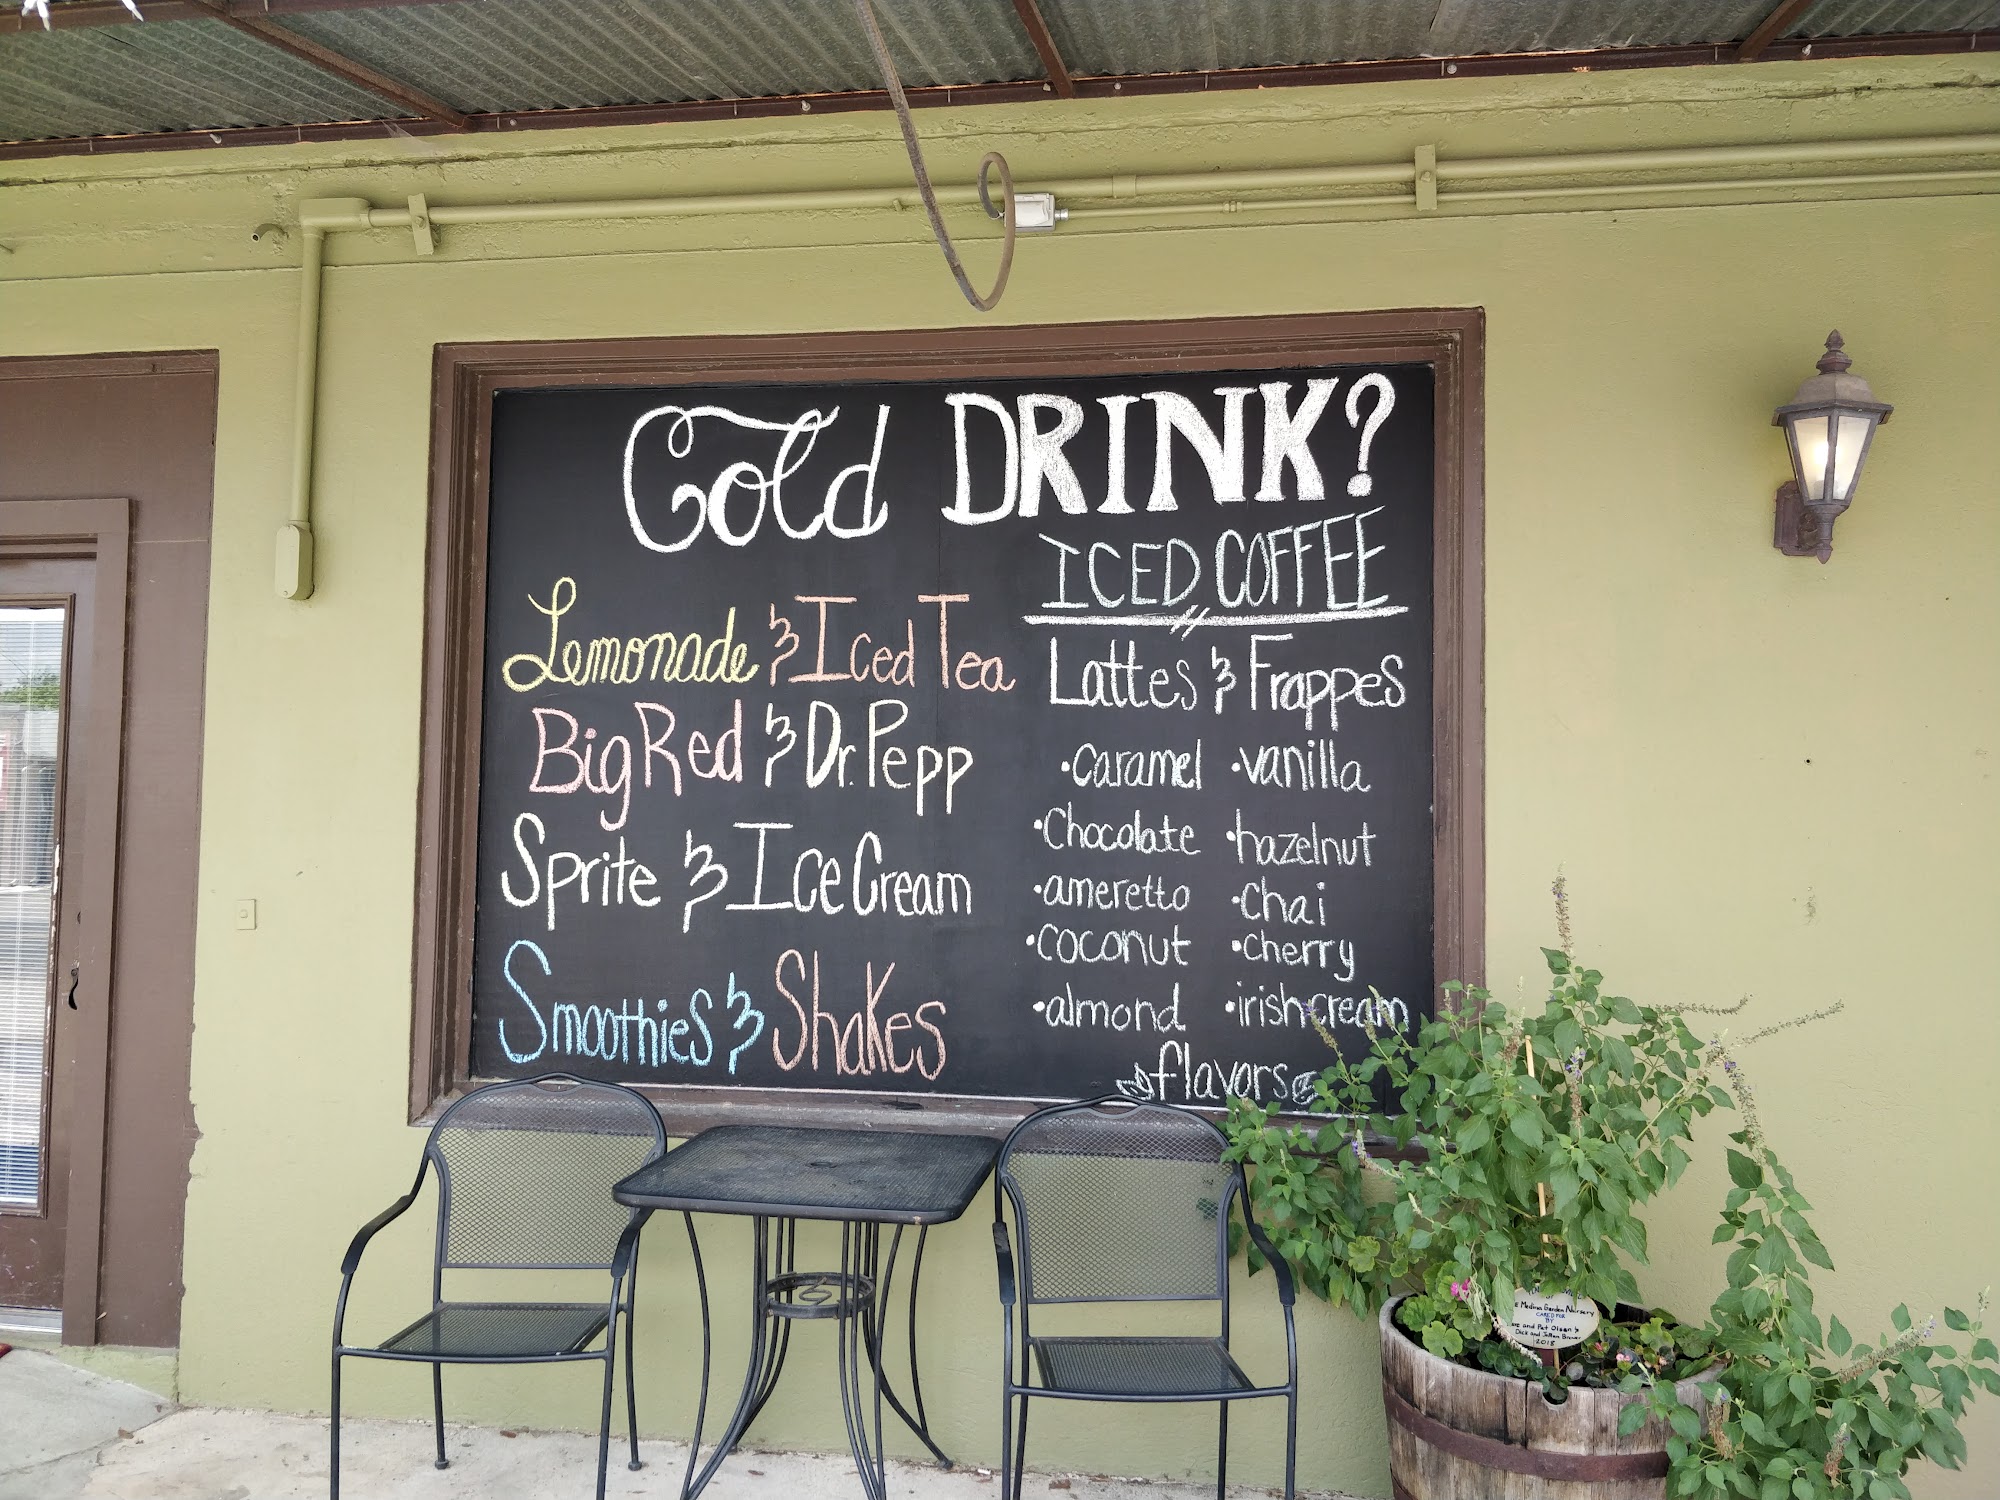 Cold DRINK?
Lemonade & Iced Tea
Big Red & Dr. Pepp
Sprite & Ice Cream
Smoothies & Shakes
ICED COFFEE
Lattes & Frappes
•caramel •vanilla
•Chocolate •hazelnut
•ameretto •chai
•coconut •cherry
•almond •irish cream
flavors
Medina Garden Nursery
CARED FOR
BY
and Pat Olsen &
Dick and
2018